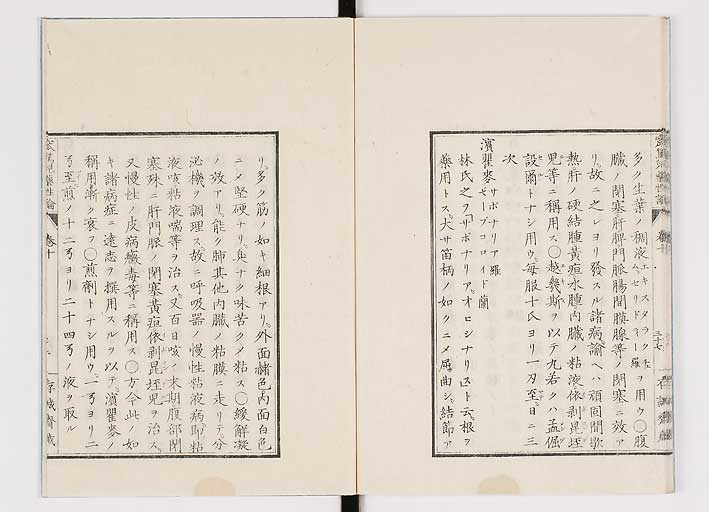 多ク生葉ノ稠液エキスタラクチムセリドニー羅ヲ用ウ○腹
臓ノ閉塞肝脾門脈腸間膜腺等ノ閉塞ニ效ア
リ。故ニ之レヨリ發スル諸病諭ヘハ頑固間歇
熱肝ノ硬結腫黄疸水腫内臓ノ粘液依剥昆垤
児等ニ稱用ス○越幾斯ヲ以テ丸若クハ
設爾トナシ用ウ。毎服十氏ヨリ一刃至日ニ三
次
濱瞿麥サポナリア羅
セープコロイド蘭
林氏之ヲサポナリアオヒシナリスト云。根ヲ
藥用トス。大サ笛柄ノ如クニメ屈曲シ結節ア
リ。多ク筋ノ如キ細根アリ。外面赭色内面白色
ニメ堅硬ナリ。臭ナク味苦クメ粘ス○緩解凝
ノ效アリ。能ク肺其他内臓ノ粘膜ニ走リテ分
泌機ヲ調理ス。故ニ呼吸器ノ慢性粘液病即粘
液咳粘液喘等ヲ治ス。又百日咳ノ末期腹部閉
塞殊ニ肝門脈ノ閉塞黄疸依剥昆垤児ヲ治ス。
又慢性ノ皮病黴毒等ニ稱用ス○方今此ノ如
キ諸病症ニ遠志ヲ撰用スルヲ以テ。濱瞿麥ノ
稱用漸ク衰フ○煎劑トナシ用ウ。一ヨリ二
至煎ノ十二ヨリ二十四ノ液ヲ取ル
卷十
存誠齋藏
三十七